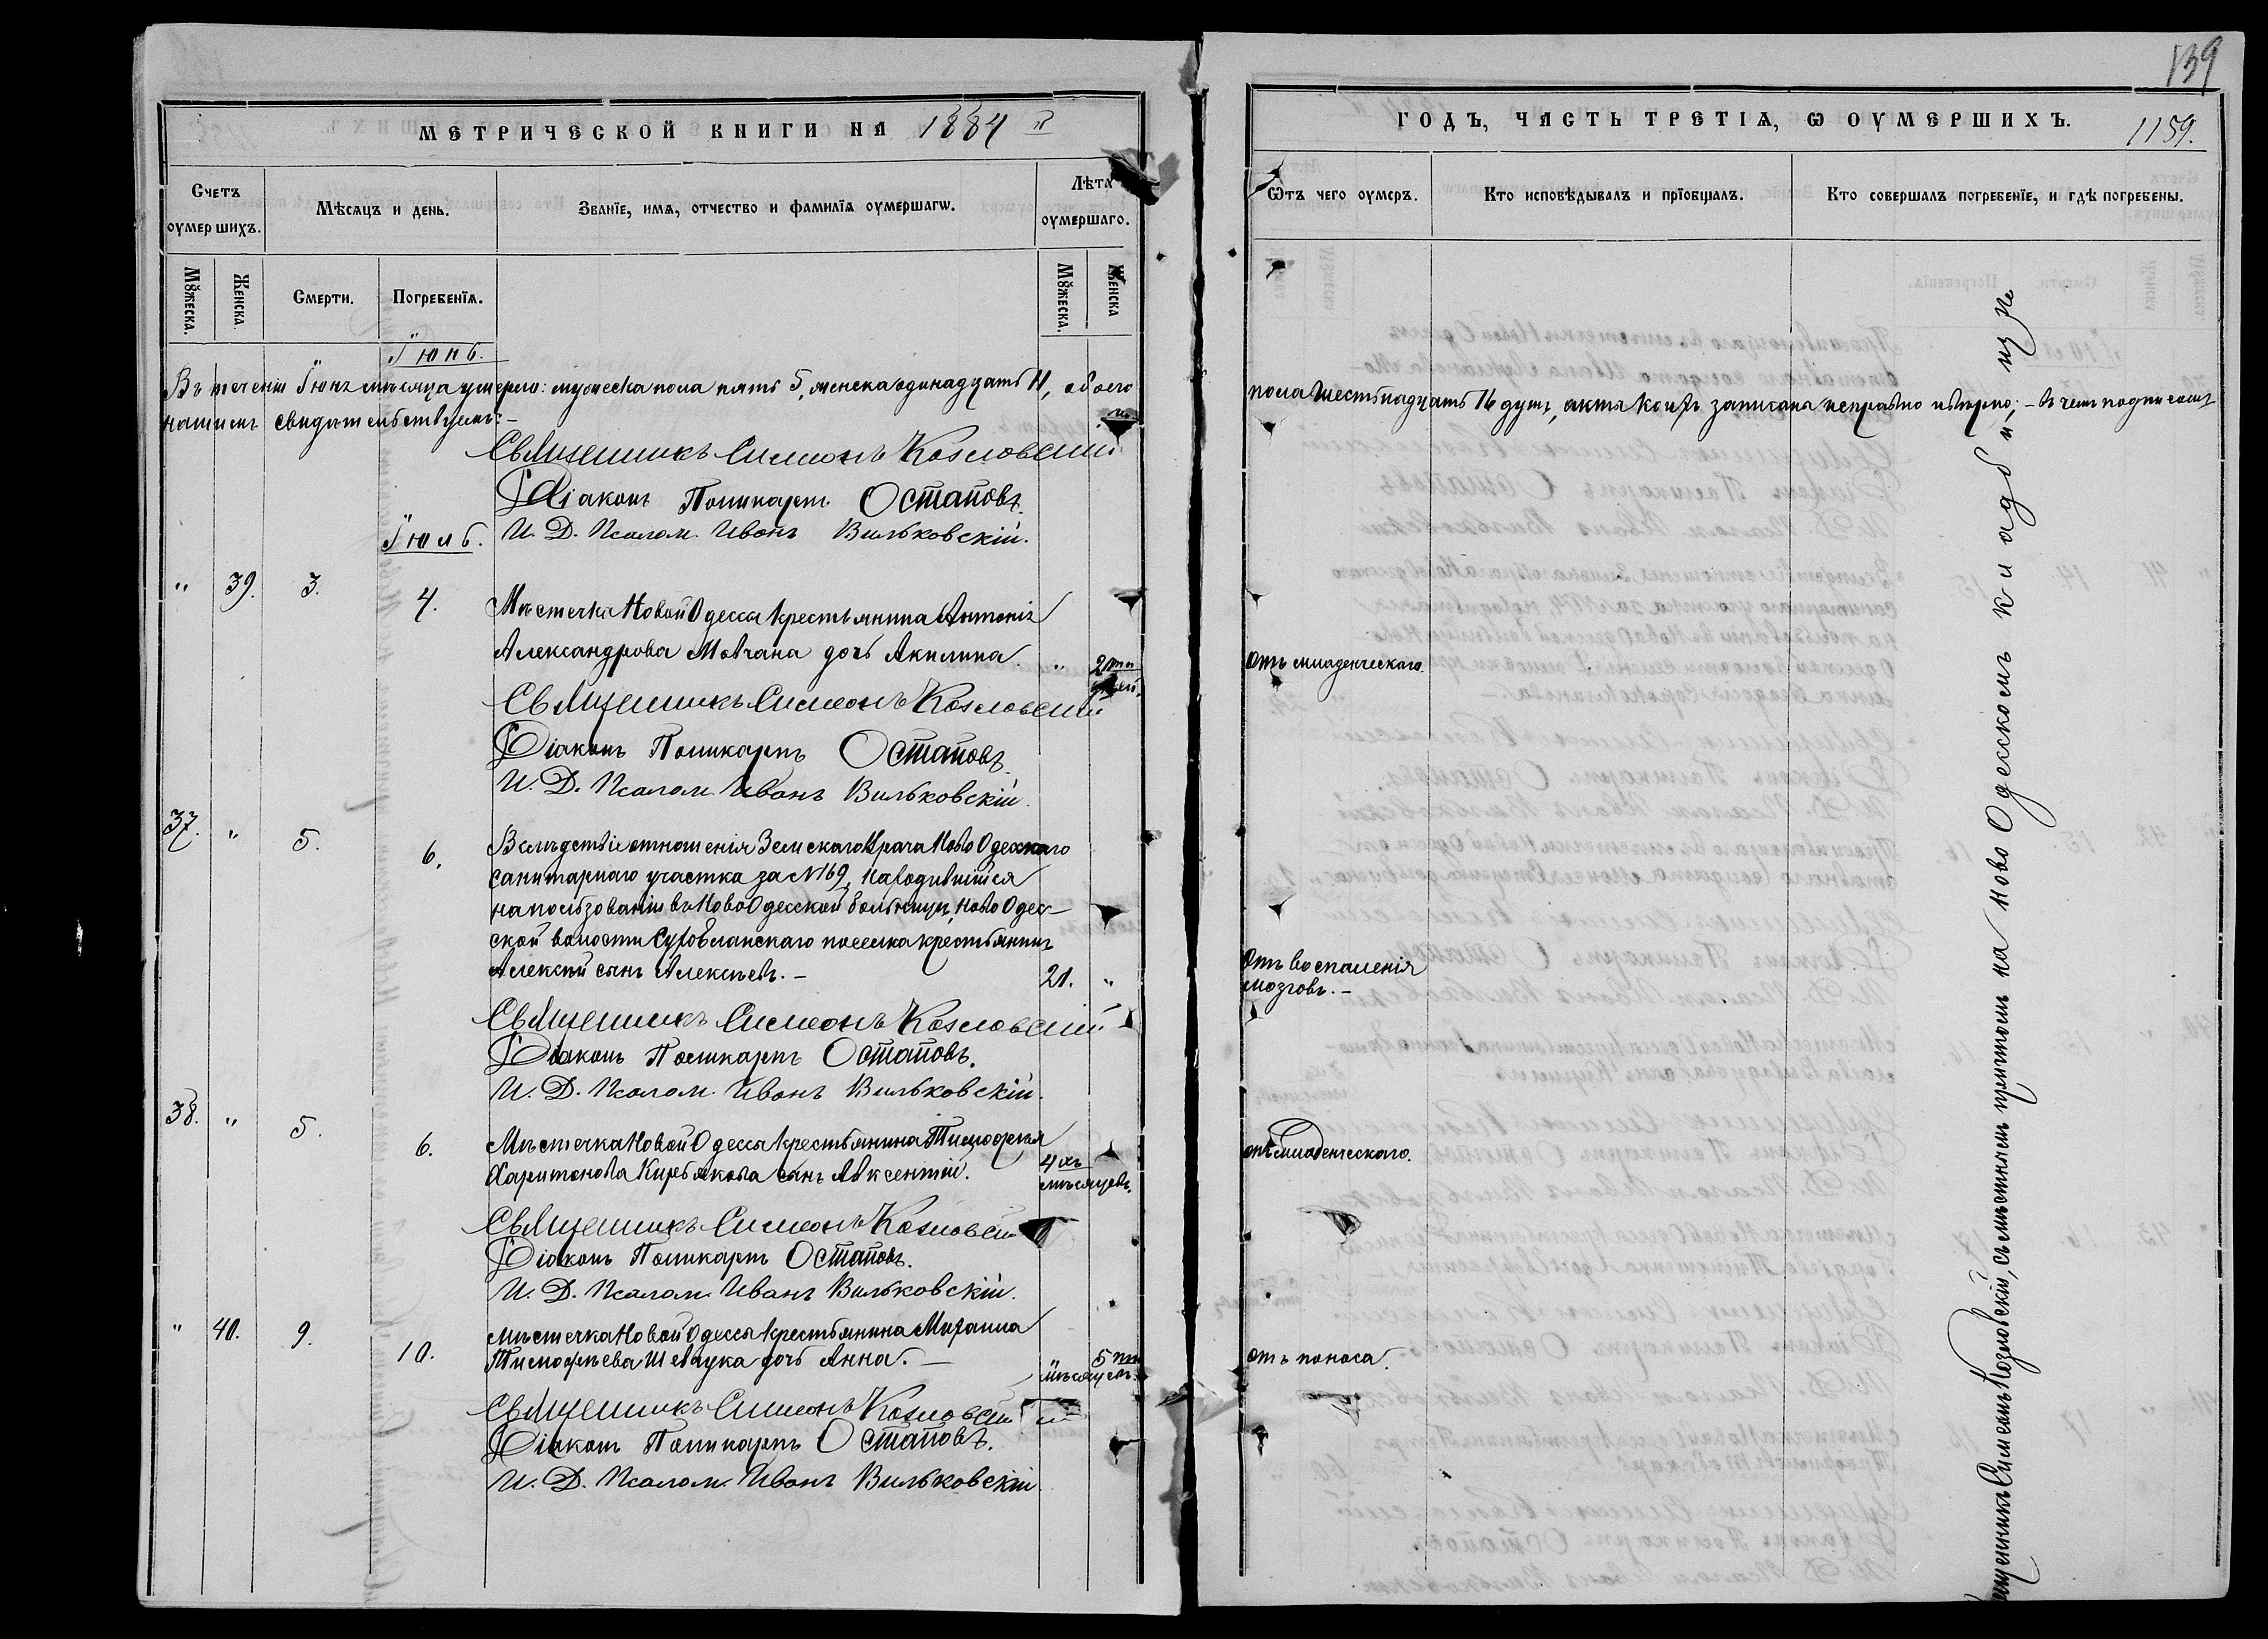 139
МЕТРИЧЕСКОЙ КНИГИ НА 1884 й
ГОДЪ, ЧАСТЬ ТРЕТІЯ, Ѡ ОУМЕРШИХЪ.
1159.
Счетъ оумершихъ.
Мѣсяцъ и день.
Званїе, имѧ, отчество и фамилїѧ оумершагѡ.
Лѣта оумершаго.
Ѿтъ чего оумеръ.
Кто исповѣдывалъ и прїобщалъ.
Кто совершалъ погребенїе, и гдѣ погребены.
Мꙋжеска.
Женска.
Смерти.
Погребенїѧ.
Мꙋжеска.
Женска
Іюнь.
Въ теченіи Іюнѣ мѣсяца умерло: мужеска пола пять 5, женска одинадцать 11, обоего пола шестьнадцать 16 душъ, акты коихъ записаны исправно и вѣрно; – въ чемъ подписомъ
нашимъ свидѣтельствуемъ: –
Священникъ Симеонъ Козловскій
Діаконъ Поликарпъ Остаповъ.
И. Д. Псалом. Иванъ Вильковскій.
Іюль.
" 39. 3. 4.
Мѣстечка Новой Одессы крестьянина Антонія
Александрова Мовчана дочь Акилина. "
2 дней.
Отъ младенческаго.
Священникъ Симеонъ Козловскій
Діаконъ Поликарпъ Остаповъ.
И. Д. Псалом. Иванъ Вильковскій.
37. " 5. 6.
Вслѣдствіе отношенія Земскаго Врача Ново Одесскаго
санитарнаго участка за №169, находившійся
на пользованіи въ Ново Одесской больницѣ, Ново Одес-
ской волости Суховланскаго поселка крестьянинъ
Алексѣй сынъ Алексѣевъ. – 21. "
Отъ воспаленія
мозговъ. –
Священникъ Симеонъ Козловскій
Діаконъ Поликарпъ Остаповъ.
И. Д. Псалом. Иванъ Вильковскій.
38. " 5. 6.
Мѣстечка Новой Одессы крестьянина Тимофея
Харитонова Кирьякова сынъ Авксентій.
4 хъ
мѣсяцевъ.
отъ младенческаго.
Священникъ Симеонъ Козловскій
Діаконъ Поликарпъ Остаповъ.
И. Д. Псалом. Иванъ Вильковскій.
" 40. 9. 10.
Мѣстечка Новой Одессы крестьянина Михаила
Тимофѣева Шевчука дочь Анна. –
5 ти
мѣсяцевъ.
отъ поноса.
Священникъ Симеонъ Козловскій
Діаконъ Поликарпъ Остаповъ.
И. Д. Псалом. Иванъ Вильковскій
Священникъ Симеонъ Козловскій, съ мѣстнымъ причтомъ на Ново Одесскомъ кладбищѣ